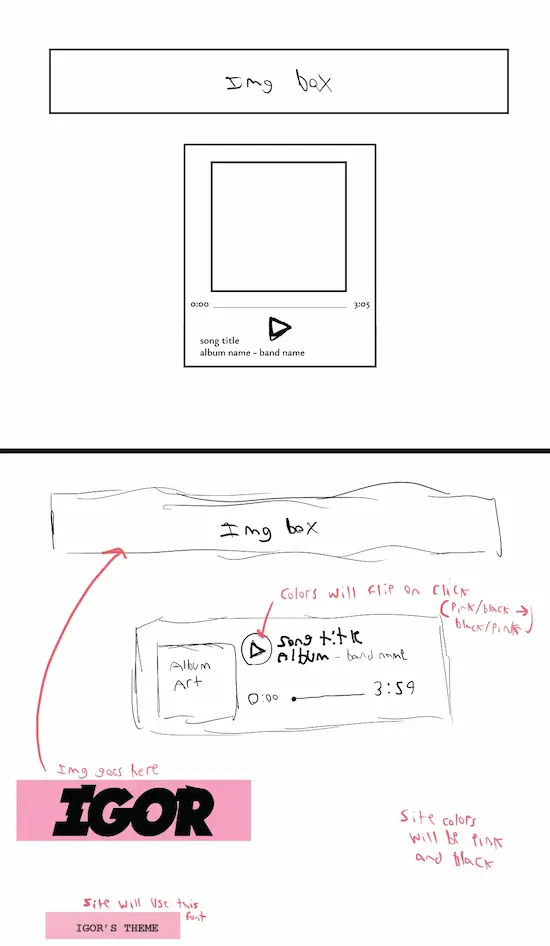 Img box
0:00 3:05
song title
album name - band name
Img box
Colors will flip on click
(pink/black →
black/pink)
song title
Album - band name
Album
Art
0:00 3:59
Img goes here
IGOR
Site colors
will be pink
and black
Site will use this
font
IGOR'S THEME